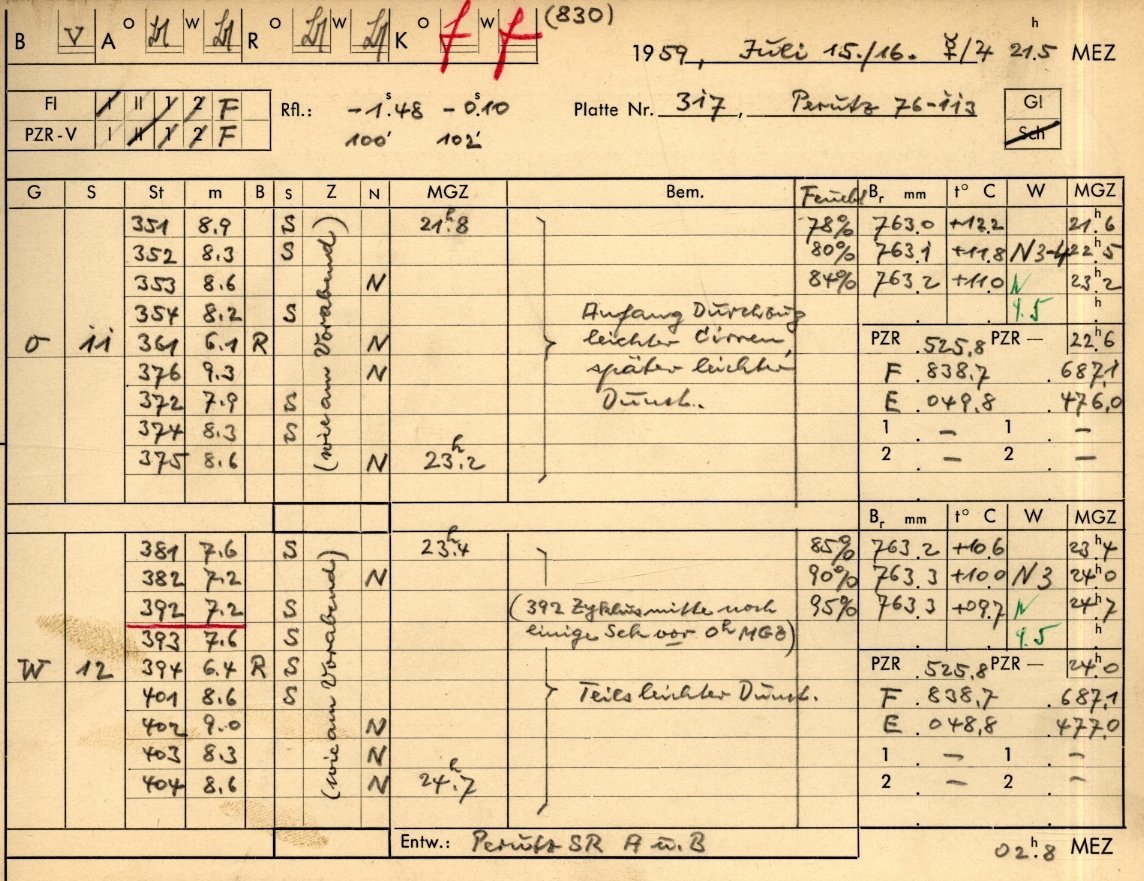 (830)
B V A O W R O W K O f W f
1959, Juli 15./16. ☿/♃ 21h.5 MEZ
FI I II 1 2 F
PZR-V I II 1 2 F
Rfl.: -1s.48 -0s.10
100' 102'
Platte Nr. 317, Perutz 76-113
Gl
Sch
G S St m B S Z N MGZ Bem. Feucht Br mm t° C W MGZ
351 8.9 S 21h.8 78% 763.0 +12.2 21h.6
352 8.3 S 80% 763.1 +11.8 N3-4 22h.5
353 8.6 N 84% 763.2 +11.0 N 23h.2
354 8.2 S Anfang Durchzug 9.5 h
O 11 361 6.1 R N leichter Cirren, PZR .525,8 PZR — 22h.6
376 9.3 N später leichter F .838,7 .687,1
372 7.9 S Dunst. E .049,8 .476,0
374 8.3 S 1 . — 1 . —
375 8.6 N 23h.2 2 . — 2 . —
(wie am Vorabend)
Br mm t° C W MGZ
381 7.6 S 23h.4 85% 763.2 +10.6 23h.4
382 7.2 N 90% 763.3 +10.0 N3 24h.0
392 7.2 S (392 Zyklusmitte noch 95% 763.3 +09.7 N 24h.7
393 7.6 S einige Sek vor 0h MGZ) 9.5 h
W 12 394 6.4 R S PZR .525,8 PZR — 24h.0
401 8.6 S Teils leichter Dunst. F .838,7 .687,1
402 9.0 N E .048,8 .477,0
403 8.3 N 1 . — 1 . —
404 8.6 N 24h.7 2 . — 2 . —
(wie am Vorabend)
Entw.: Perutz SR A u. B
02h.8 MEZ